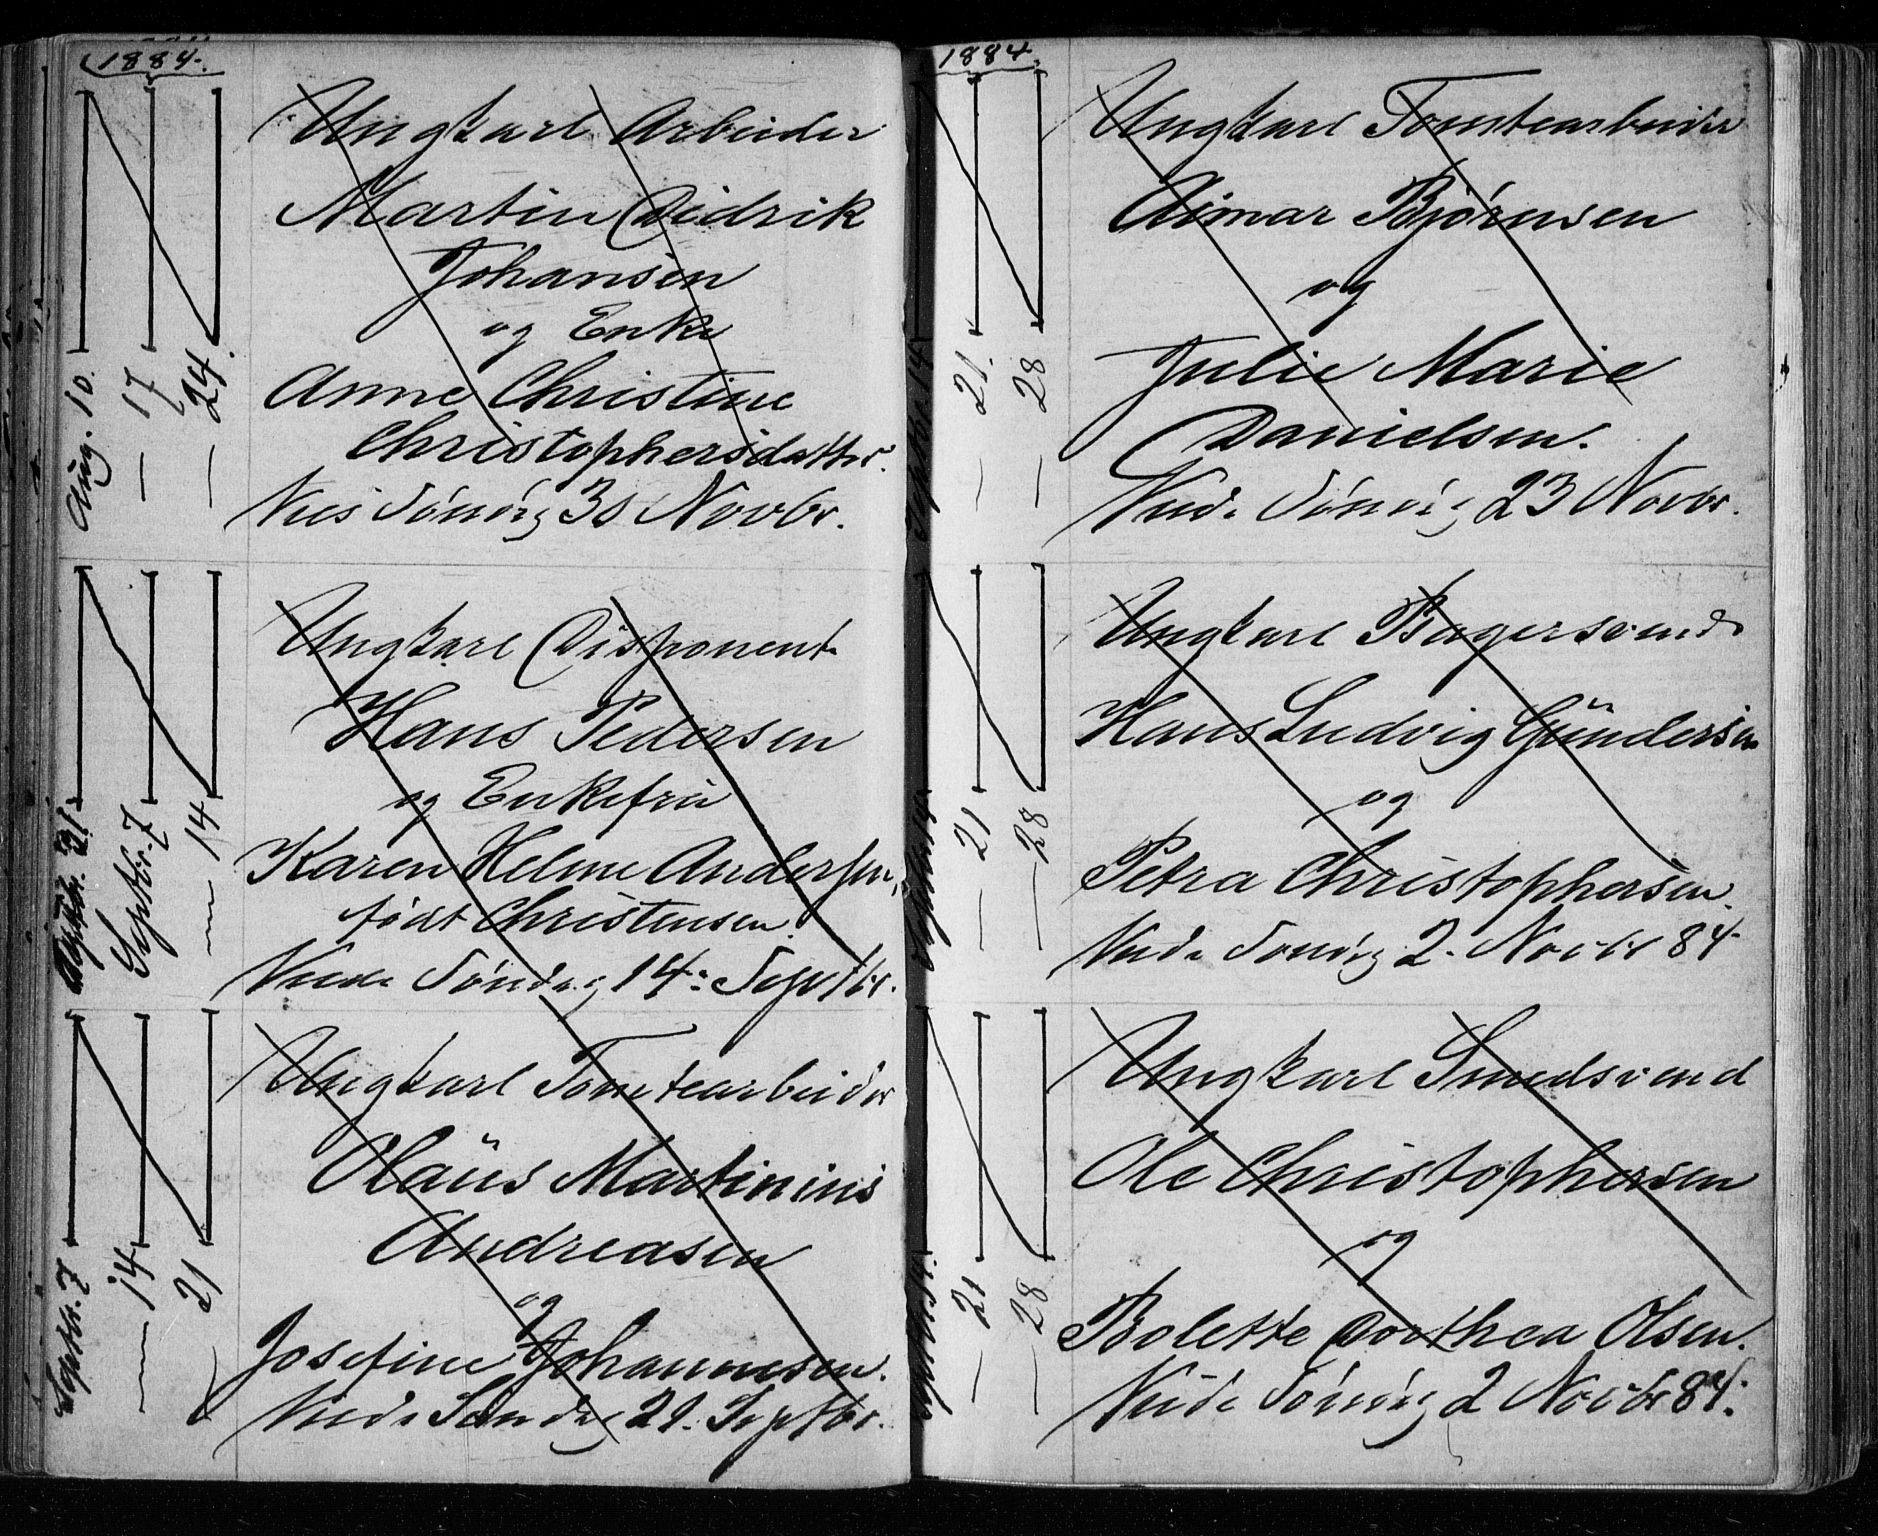 1884.
Aug. 10.
— 17
— 24.
Ungkarl Arbeider
Martin Didrik
Johansen
og Enke
Anne Christine
Christophersdatter.
Viet Søndag 30 Novbr.
31.
Septbr. 7
— 14
Ungkarl Disponent
Hans Pedersen
og Enkefrü
Karen Helene Andersen,
født Christensen.
Viede Søndag 14: Septbr.
Septbr. 7
— 14
21
Ungkarl Tomtearbeider
Olaüs Martinius
Andreasen
og
Josefine Johannesen.
Viede Søndag 21. Septbr.
1884.
Septbr. 14
— 21.
— 28
Ungkarl Tomtearbeider
Aimar Bjørnsen
og
Julie Marie
Danielsen.
Viede Søndag 23 Novbr.
Septbr. 14
— 21
— 28
Ungkarl Bagersvend
Hans Ludvig Gündersen
og
Petra Christophersen.
Viede Søndag 2. Novbr 84
Septbr. 14.
— 21
— 28
Ungkarl Smedsvend
Ole Christophersen
og
Bolette Dorthea Olsen.
Viede Søndag 2 Novbr 84.